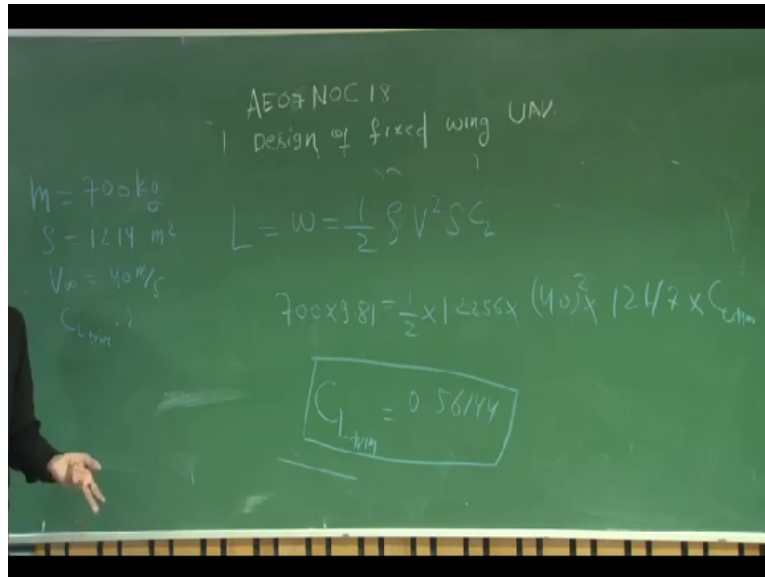 AE07NOC18
Design of fixed wing UAV.
m = 700kg
S = 1214 m²
V∞ = 40 m/s
C_Ltrim ?
L = W = 1/2 ρ V² S C_L
700x9.81 = 1/2 x 1.2256x (40)² x x C_Ltrim
C_Ltrim = 0.56144